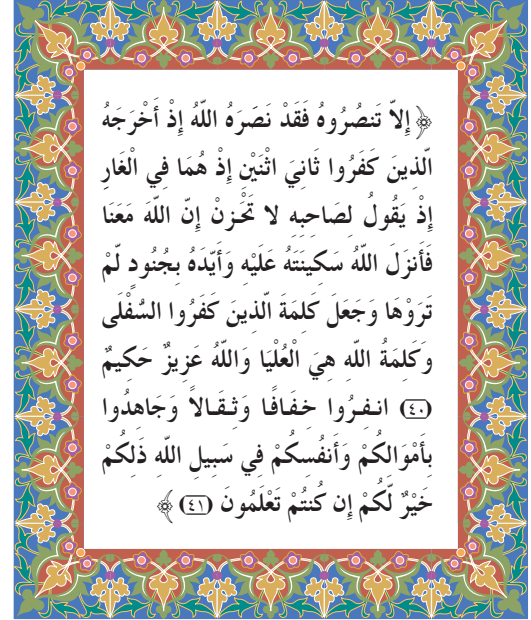 ﴿ إِلاّ تَنصُرُوهُ فَقَدْ نَصَرَهُ اللّهُ إِذْ أَخْرَجَهُ
الّذينَ كَفَرُوا ثَانيَ اثْنَيْنِ إِذْ هُمَا في الْغَارِ
إِذْ يَقُولُ لصَاحبه لا تَحْزَنْ إِنّ اللّهَ مَعَنَا
فَأَنزَلَ اللّهُ سَكينَتَهُ عَلَيْه وَأَيّدَهُ بجُنُود لّمْ
تَرَوْهَا وَجَعَلَ كَلمَةَ الّذينَ كَفَرُوا السُّفْلَى
وَكَلمَةُ اللّه هيَ الْعُلْيَا وَاللّهُ عَزيزٌ حَكيمٌ
(٤٠) انفرُوا خفَافًا وَثقَالاً وَجَاهدُوا
بأَمْوَالكُمْ وَأَنفُسكُمْ في سَبيل اللّه ذَلكُمْ
خَيْرٌ لّكُمْ إِن كُنتُمْ تَعْلَمُونَ (٤١) ﴾